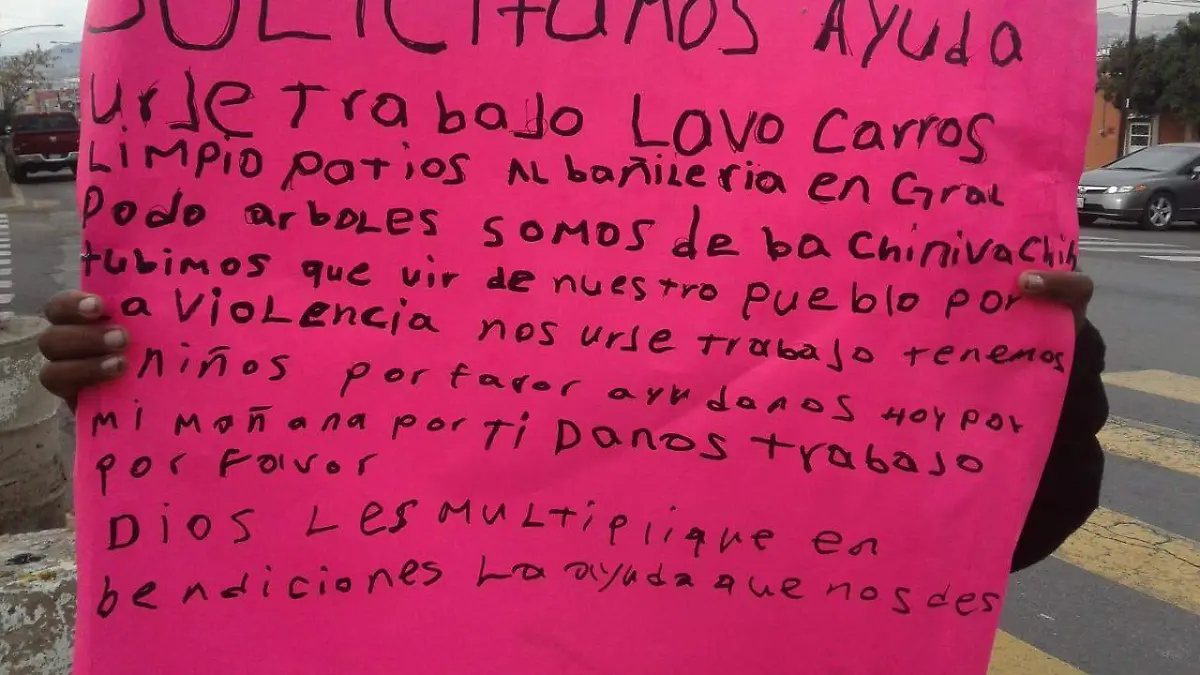 SOLICITAMOS AYUDA
UrJe TrabaJo LAVO Carros
LiMPiO PATIOS ALbañiLeria en GraL
PoDo arboLes somos de baChiniva Chih
tubimos que vir de nuestro pueblo por
La VioLencia nos urJe trabaJo tenemos
niños por favor ayudanos Hoy por
mi Mañana por Ti Danos trabaJo
por Favor
Dios Les MULTiplique en
bendiciones La ayuda que nos des